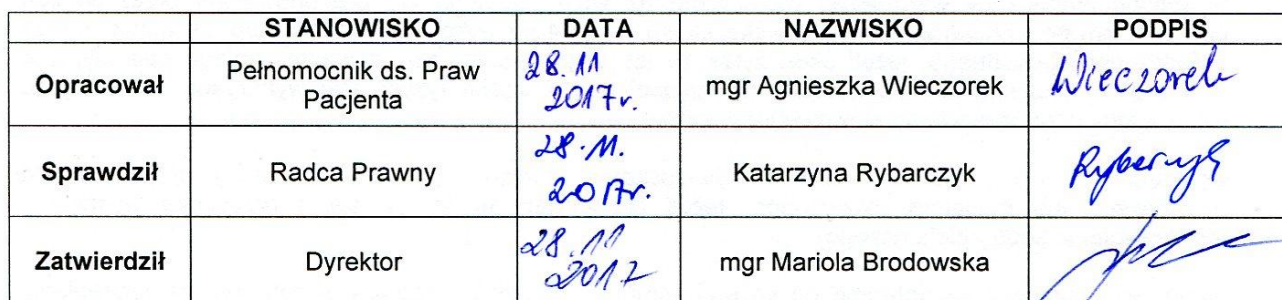 STANOWISKO DATA NAZWISKO PODPIS
Opracował Pełnomocnik ds. Praw Pacjenta 28.11 2017r. mgr Agnieszka Wieczorek Wieczorek
Sprawdził Radca Prawny 28.11. 2017r. Katarzyna Rybarczyk Rybarczyk
Zatwierdził Dyrektor 28.11 2017 mgr Mariola Brodowska